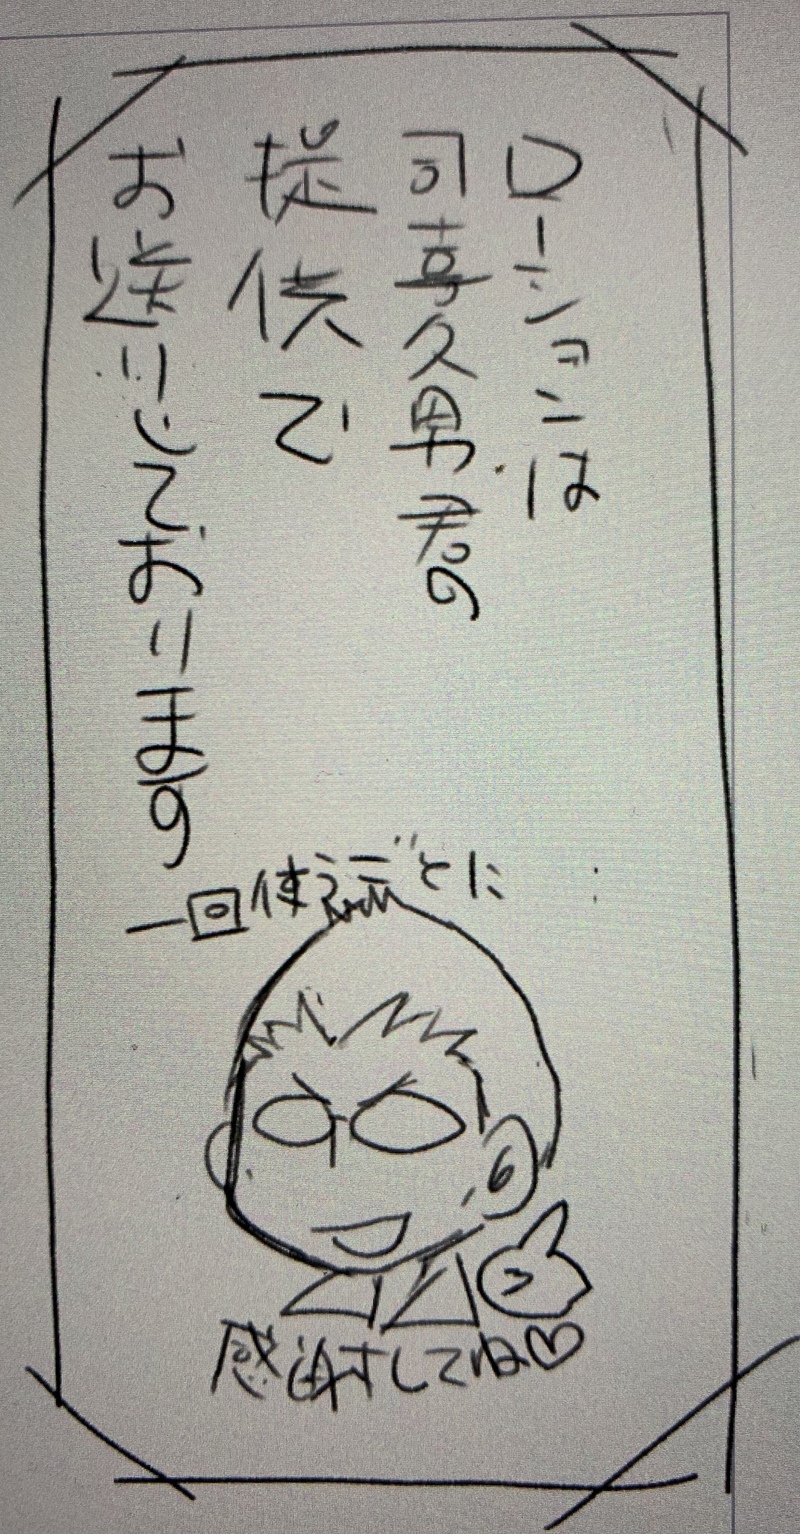 ローションは
司喜久男君の
提供で
お送りしております
一回使うごとに
感謝してね♡